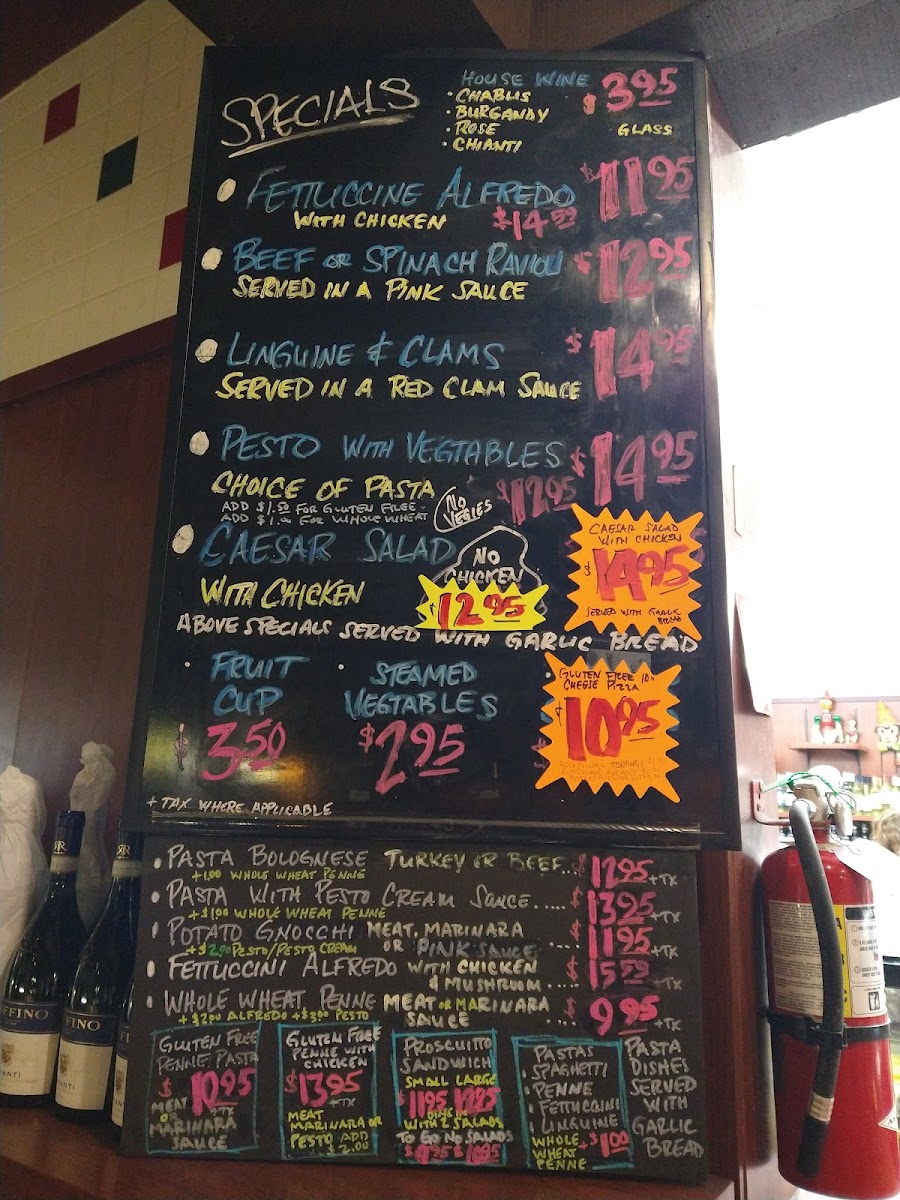 SPECIALS
HOUSE WINE $3.95
• CHABLIS
• BURGANDY
• ROSE
• CHIANTI
GLASS
FETTUCCINE ALFREDO $11.95
WITH CHICKEN $14.59
BEEF OR SPINACH RAVIOLI $12.95
SERVED IN A PINK SAUCE
LINGUINE & CLAMS $14.95
SERVED IN A RED CLAM SAUCE
PESTO WITH VEGTABLES $14.95
CHOICE OF PASTA NO VEGIES $12.95
ADD $1.50 FOR GLUTEN FREE
ADD $1.00 FOR WHOLE WHEAT
CAESAR SALAD
WITH CHICKEN
NO CHICKEN
$12.95
CAESAR SALAD
WITH CHICKEN
$14.95
SERVED WITH GARLIC
BREAD
ABOVE SPECIALS SERVED WITH GARLIC BREAD
• FRUIT CUP
$3.50
• STEAMED VEGTABLES
$2.95
GLUTEN FREE 10"
CHEESE PIZZA
$10.95
+ TAX WHERE APPLICABLE
• PASTA BOLOGNESE TURKEY OR BEEF... $12.95 +TX
+1.00 WHOLE WHEAT PENNE
• PASTA WITH PESTO CREAM SAUCE..... $13.95 +TX
+$1.00 WHOLE WHEAT PENNE
• POTATO GNOCCHI MEAT, MARINARA
OR PINK SAUCE .... $11.95 +TX
+$2.00 PESTO/PESTO CREAM
• FETTUCCINI ALFREDO WITH CHICKEN
& MUSHROOM.... $15.59 +TX
• WHOLE WHEAT PENNE MEAT OR MARINARA
SAUCE ... $9.95 +TX
+$2.00 ALFREDO +$3.00 PESTO
GLUTEN FREE
PENNE PASTA
$10.95
+TX
MEAT
MARINARA
SAUCE
GLUTEN FREE
PENNE WITH
CHICKEN
$13.95
+TX
MEAT
MARINARA OR
PESTO ADD
$2.00
PROSCIUTTO
SANDWICH
SMALL LARGE
$11.95 12.95
DINE IN
WITH 2 SALADS
TO GO NO SALADS
$9.95 $10.95
• PASTAS
• SPAGHETTI
• PENNE
• FETTUCCINI
• LINGUINE
WHOLE +$1.00
WHEAT
PENNE
PASTA
DISHES
SERVED
WITH
GARLIC
BREAD
FFINO